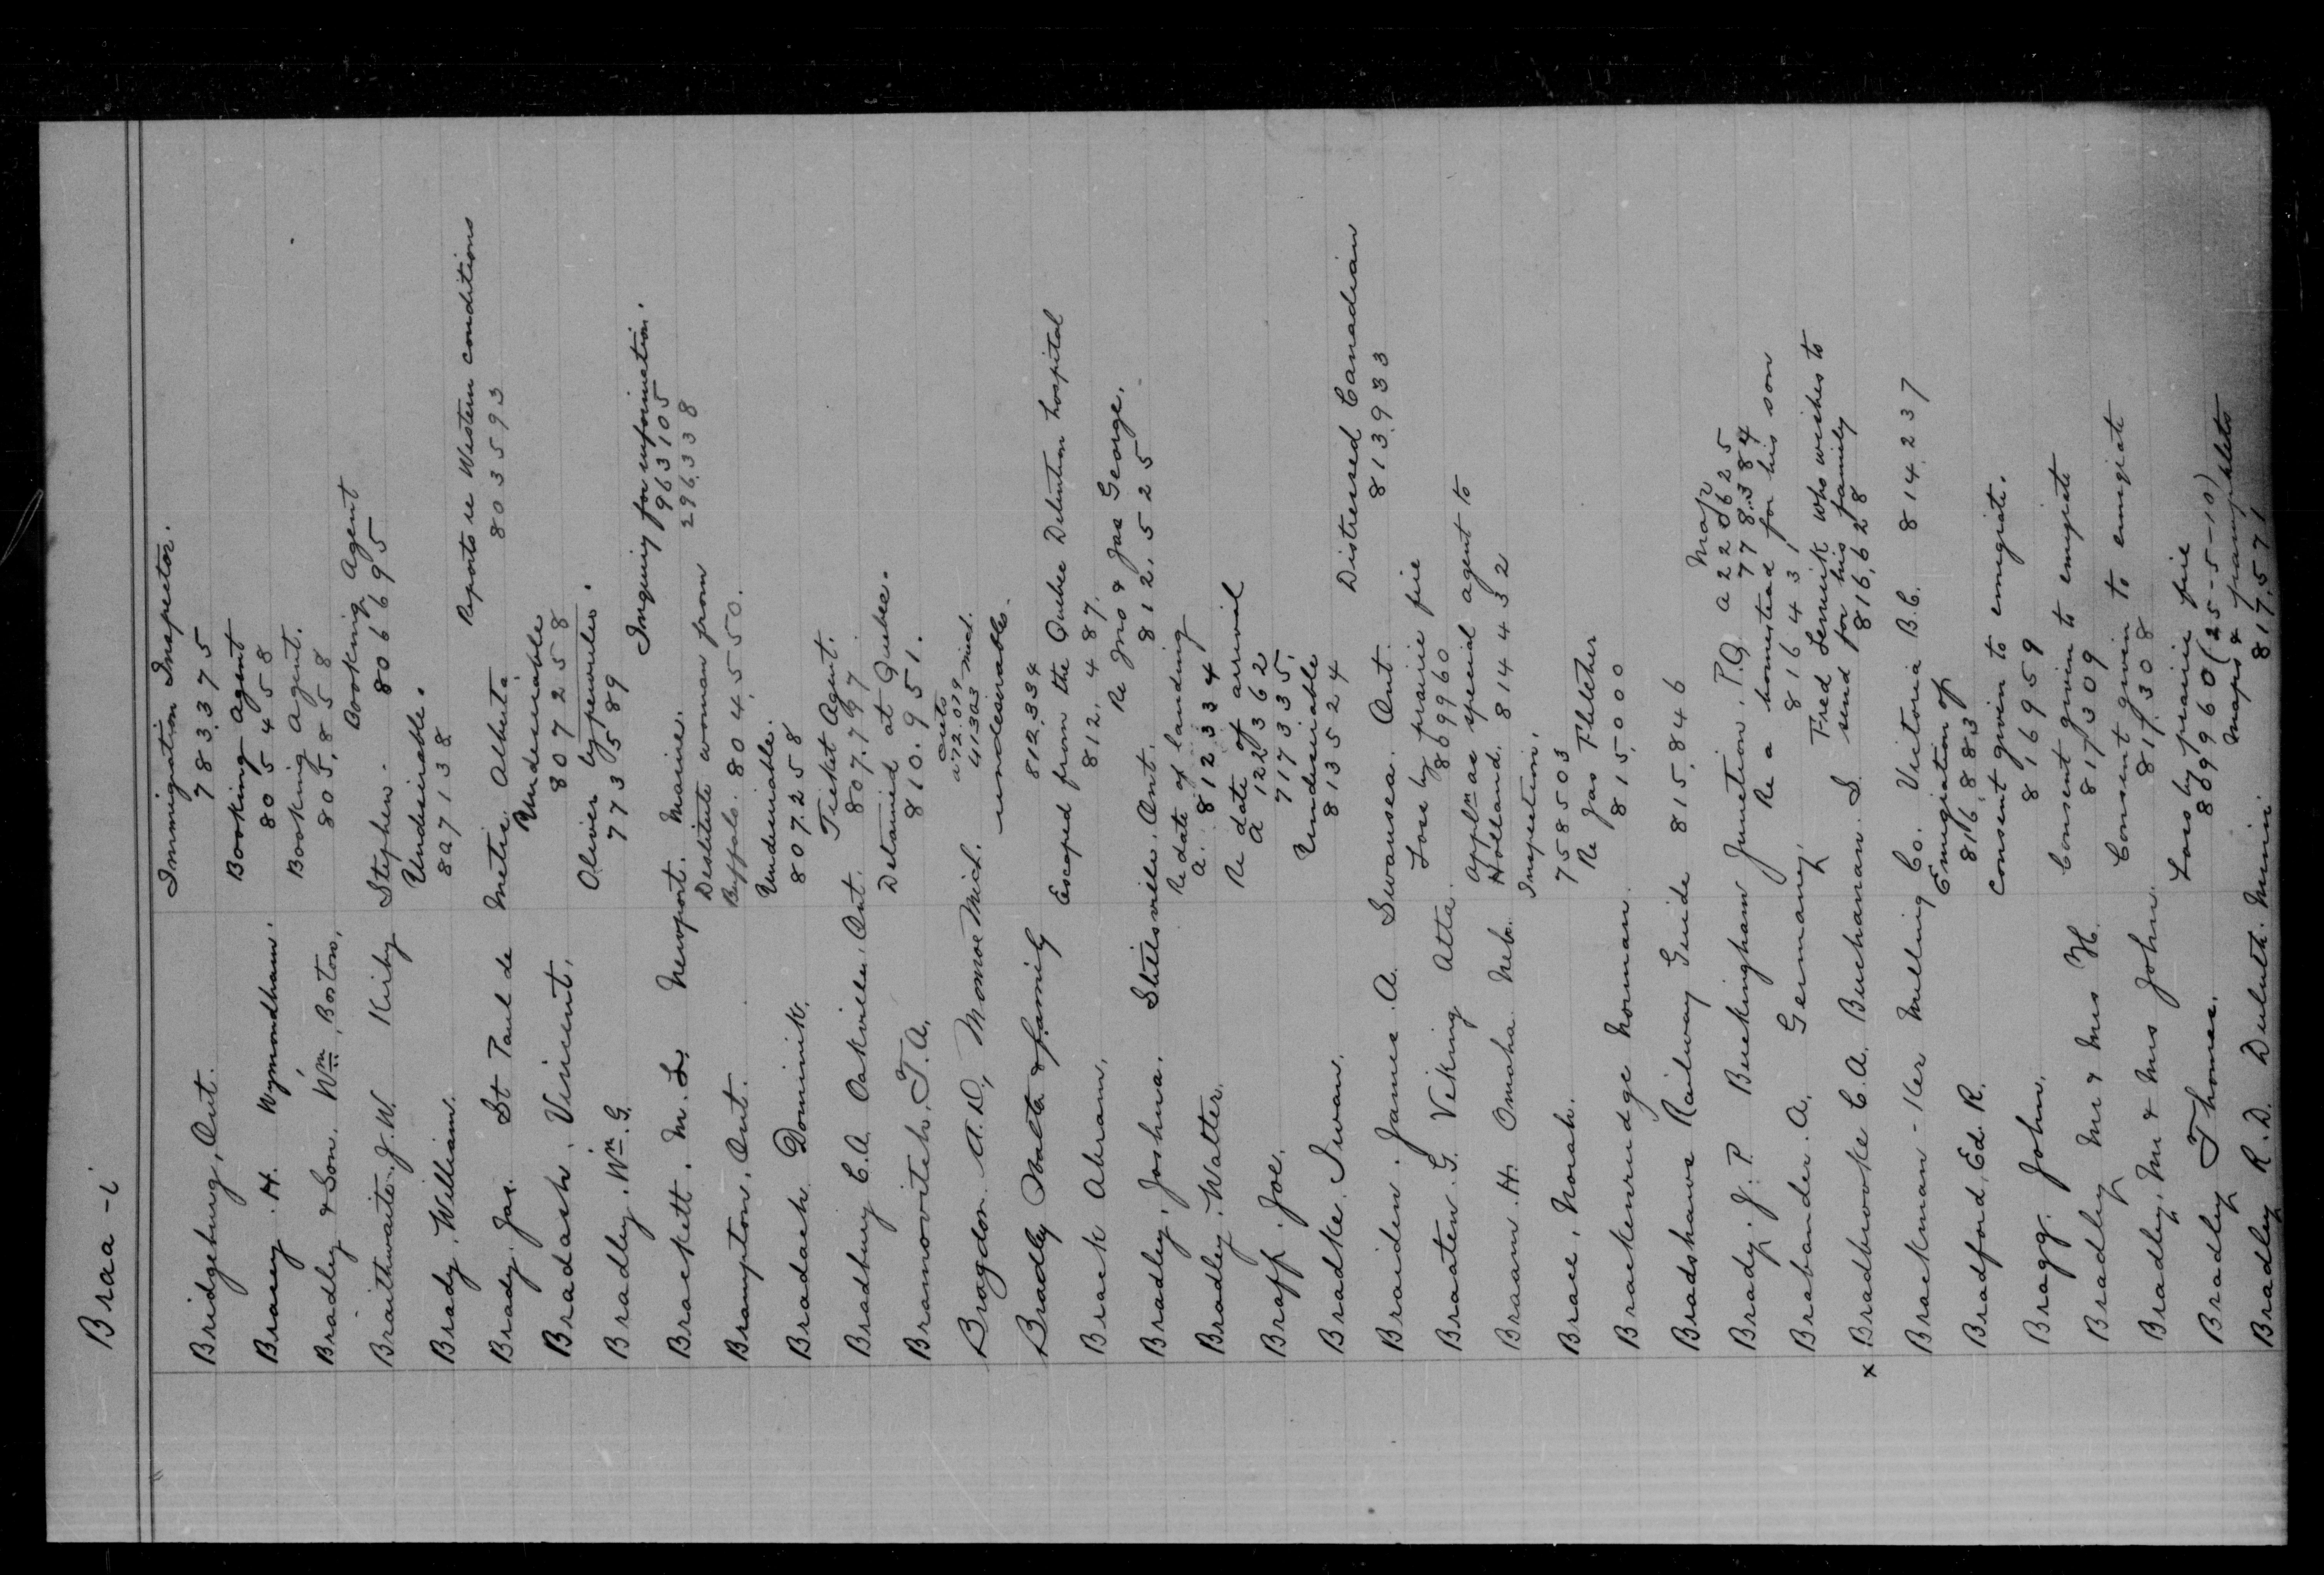 Braa - i
Immigration Inspector.
Bridgeburg, Ont. 783375
Booking Agent
Bracey. H. Wymondham. 805458
Booking Agent.
Bradley & Son, Wm, Boston, 805,858
Booking Agent
Braithwaite, J.W. Kirby Stephen. 806695
Undesirable.
Brady, William. 807138
Reports re Western conditions
Brady, Jas. St Paul de Metis. Alberta 803593
Undesirable
Bradash, Vincent, 807258
Oliver typewriter.
Bradley, Wm. G. 773589
Inquiry for information.
963105
Brackett, M. L. Newport. Maine. 296338
Destitute woman from
Brampton, Ont. Buffalo. 804,550.
Undesirable.
Bradach Dominik. 807258
Ticket Agent.
Bradbury C.A. Oakville, Ont. 807.797
Detained at Quebec.
Bramovitch, T.A, 810.951.
cuts
a72.079
Bragdon A.D, Monroe Mich. 41303 med.
undesirable.
Bradley & family 812,334
Escaped from the Quebec Detention hospital
Brack Abram, 812,487.
Re Jno & Jas George.
Bradley, Joshua. Stittsville, Ont. 812,525
Re date of landing
Bradley, Walter. a. 812334
Re date of arrival
a 122362
Brapp. Joe. 717335,
Undesirable
Bradke, Iwan. 813524
Distressed Canadian
Braiden. James. A. Swansea. Ont. 813,933
Loss by prairie fire
Braaten. G. Viking Alta. 809960
Appln as special agent to
Braam. H. Omaha Neb. Holland. 814432
Inspection.
Brace, Norah. 758503
Re Jas Fletcher
Brackenrudge Norman. 815,000
Bradshaws Railway Guide 815,846
Map
a 220625
Brady. J. P. Buckingham Junction. P.Q. 778384
Re a homestead for his son
Brabander. A, Germany, 816431
Fred Lerwick who wishes to
send for his family
x Bradbrooke C.A. Buchanan. S 816,628
Brackman-Ker Milling Co. Victoria B.C. 814,237
Emigration of
Bradford, Ed. R. 816,883
Consent given to emigrate.
Bragg. John. 816959
Consent given to emigrate
Bradley Mr & Mrs H. 817309
Consent given to emigrate
Bradley, Mr & Mrs John. 817.308
Loss by prairie fire
Bradley Thomas. 809960 (25-5-10)
Maps & pamphlets
Bradley R.D. Duluth. Minn. 817,571